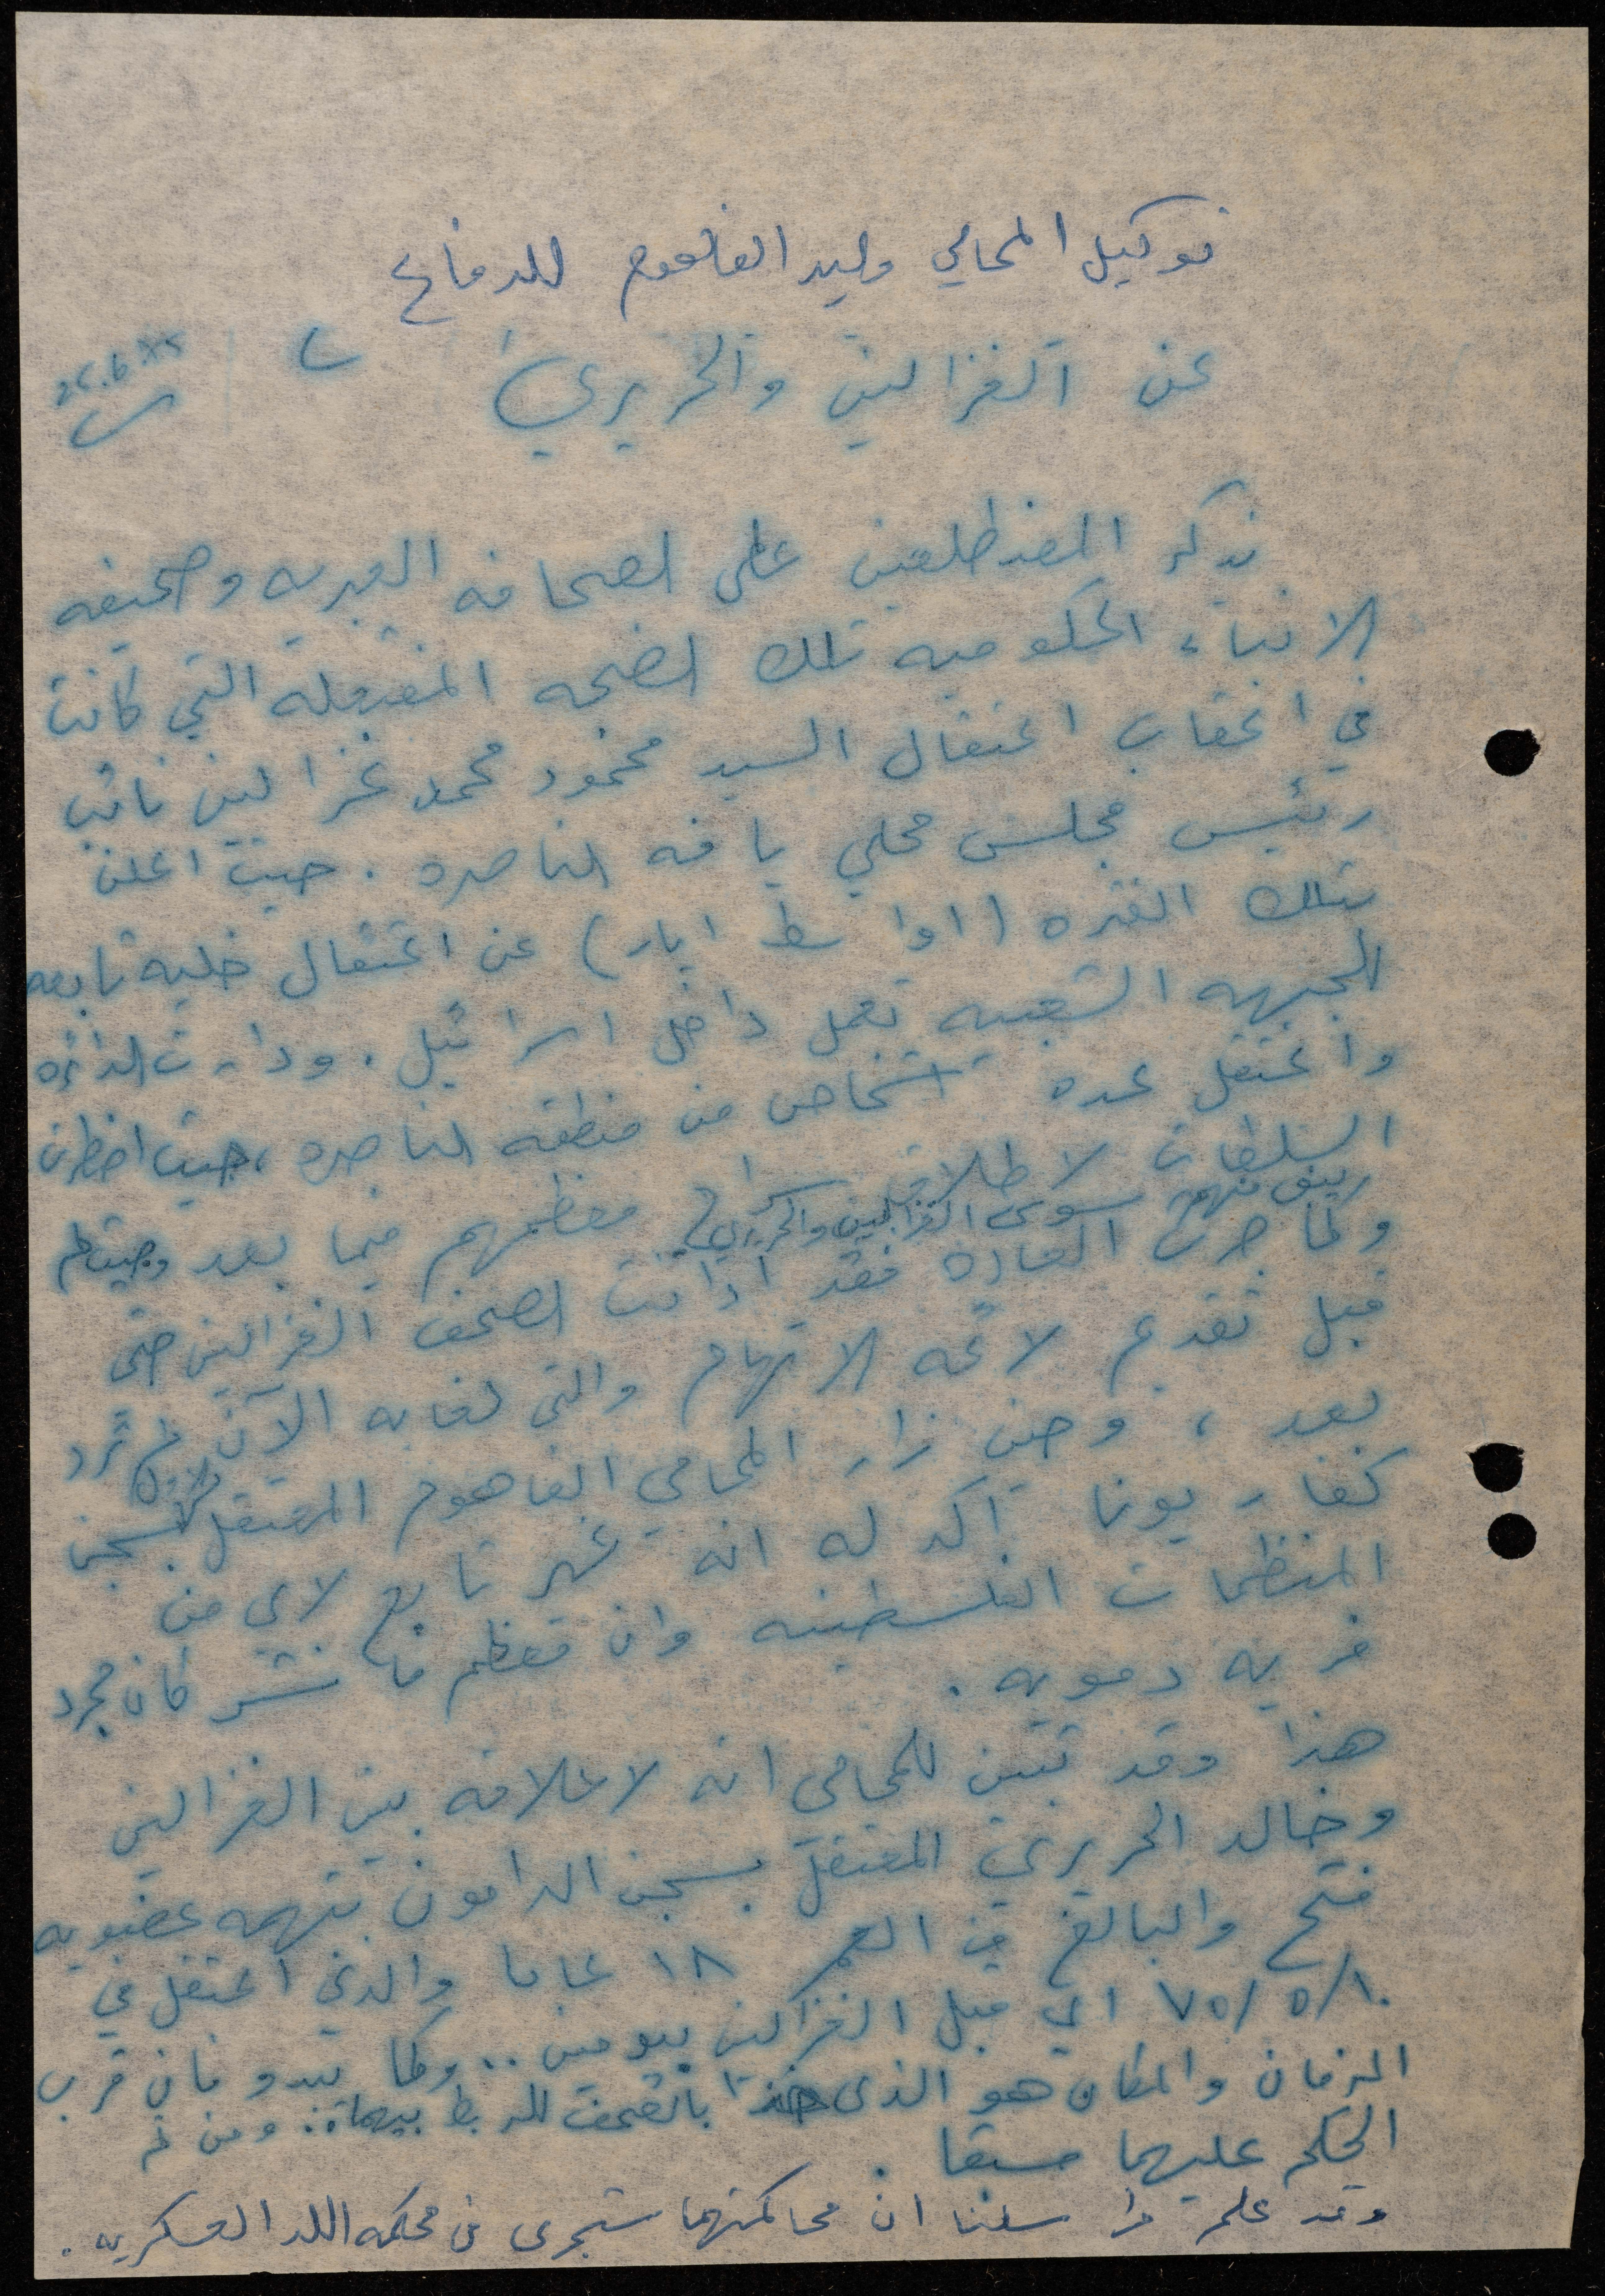 توكيل المحامي وليد الفاهوم للدفاع
عن الغزالين والحريري
يذكر المضطلعين على الصحافه العبريه وصحيفه
الانباء الحكوميه تلك الضجه المفتعله التي كانت
في اعقاب اعتقال السيد محمود محمد غزالين نائب
رئيس مجلس محلي يافه الناصره . حيث اعلن
بتلك الفتره (اواسط ايار) عن اعتقال خليه تابعه
للجبهه الشعبيه تعمل داخل اسرائيل . ودارت الدائره
واعتقل عده اشخاص من منطقه الناصره ، حيث اضطرت
السلطات لاطلاق سراح معظمهم فيما بعد وحيث لم
يبق منهم سوى الغزالين والحريري
ولما جرت العاده فقد ادانت الصحف الغزالين حتى
قبل تقديم لائحه الاتهام والتي لغايه الآن لم ترد
بعد ، وحين زار المحامي الفاهوم المعتقل بسجن
كفار يونا اكد له انه غير تابع لاي من
المنظمات الفلسطينيه وان معظم ما نشر كان مجرد
فريه دمويه .
هذا وقد تبين للمحامي انه لا علاقه بين الغزالين
وخالد الحريري المعتقل بسجن الدامون بتهمه عضويه
فتح والبالغ من العمر ١٨ عاما والذي اعتقل في
١٠/٥/٧٥ اي قبل الغزالين بيومين .. وكما يبدو فان قرب
الزمان والمكان هو الذي حذا بالصحف للربط بينهما .. ومن ثم
الحكم عليهما مسبقا .
وقد علم مراسلنا ان محاكمتهما ستجري في محكمه اللد العسكريه .